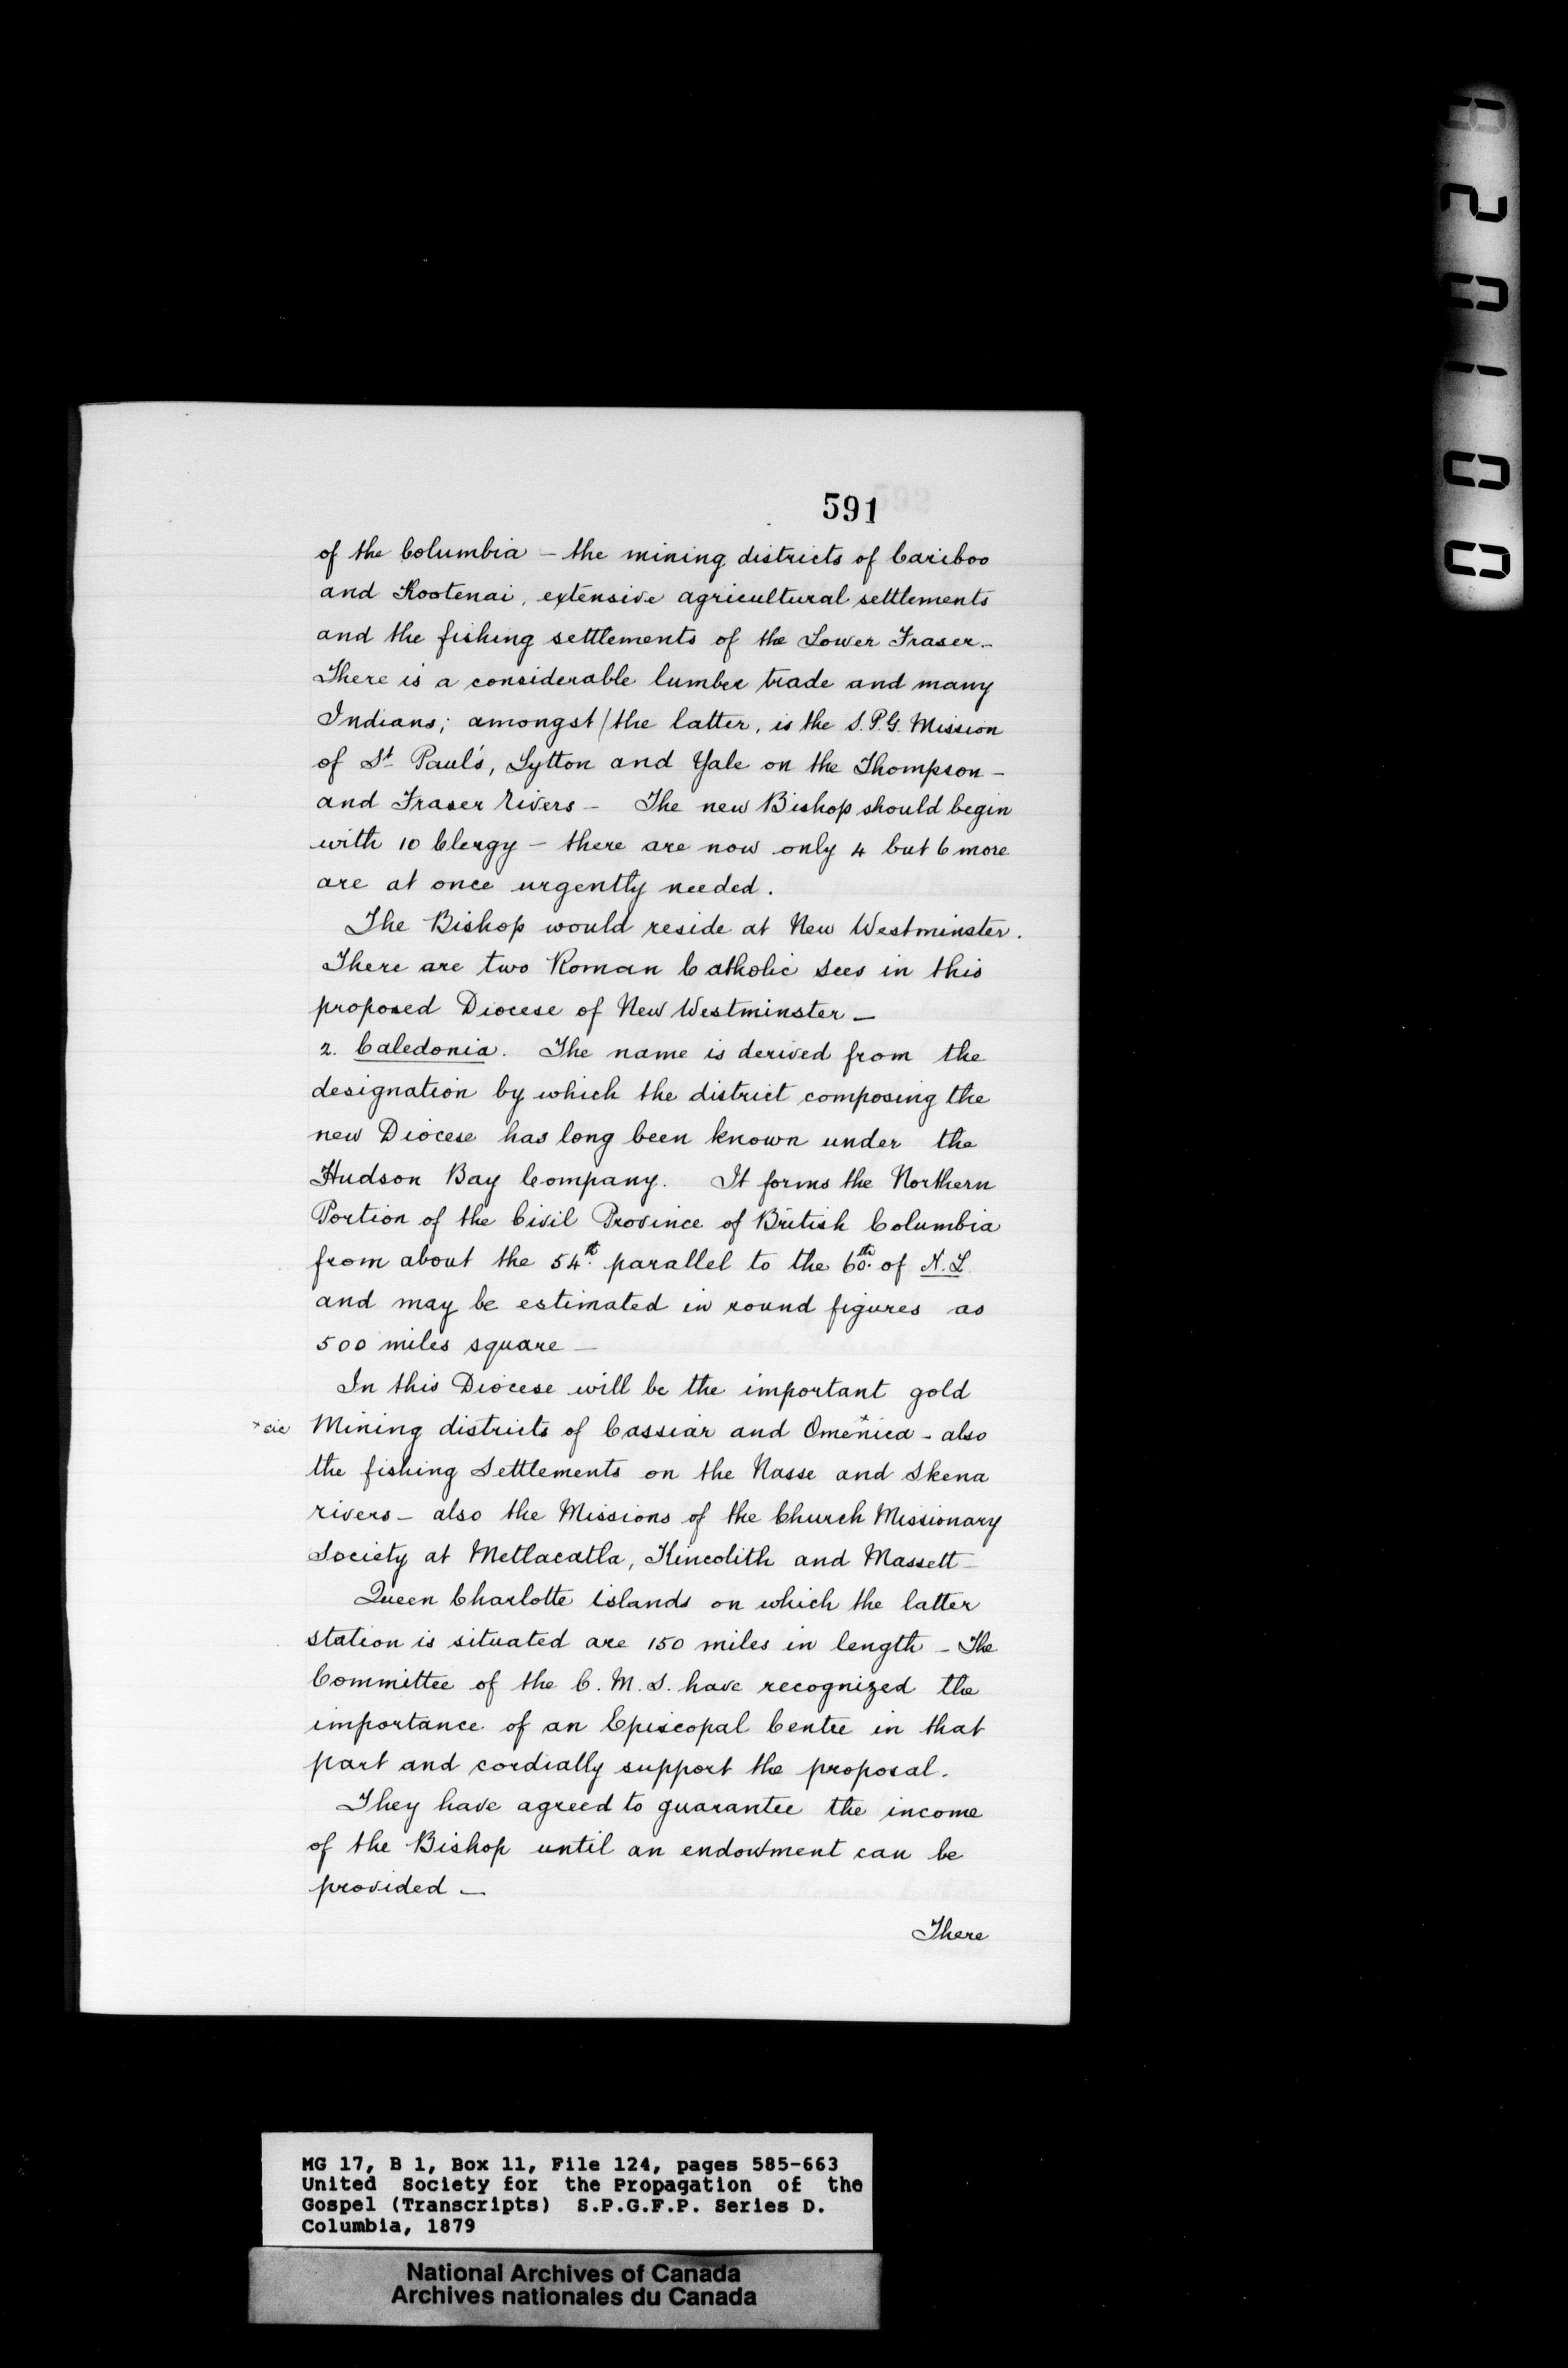 591
of the Columbia - the mining districts of Cariboo
and Kootenai, extensive agricultural settlements
and the fishing settlements of the Lower Fraser.-
There is a considerable lumber trade and many
Indians; amongst/the latter, is the S.P.G. Mission
of St Paul's, Lytton and Yale on the Thompson -
and Fraser Rivers - The new Bishop should begin
with 10 Clergy - there are now only 4 but 6 more
are at once urgently needed.
The Bishop would reside at New Westminster.
There are two Roman Catholic Sees in this
proposed Diocese of New Westminster -
2. Caledonia. The name is derived from the
designation by which the district composing the
new Diocese has long been known under the
Hudson Bay Company. It forms the Northern
Portion of the Civil Province of British Columbia
from about the 54th. parallel to the 60th. of N.L
and may be estimated in round figures as
500 miles square -
In this Diocese will be the important gold
x sic Mining districts of Cassiar and Omenica x - also
the fishing Settlements on the Nasse and Skena
rivers - also the Missions of the Church Missionary
Society at Metlacatla, Kincolith and Massett -
Queen Charlotte islands on which the latter
station is situated are 150 miles in length - The
Committee of the C.M.S. have recognized the
importance of an Episcopal Centre in that
part and cordially support the proposal.
They have agreed to guarantee the income
of the Bishop until an endowment can be
provided -
There
MG 17, B 1, Box 11, File 124, pages 585-663
United Society for the Propagation of the
Gospel (Transcripts) S.P.G.F.P. Series D.
Columbia, 1879
National Archives of Canada
Archives nationales du Canada